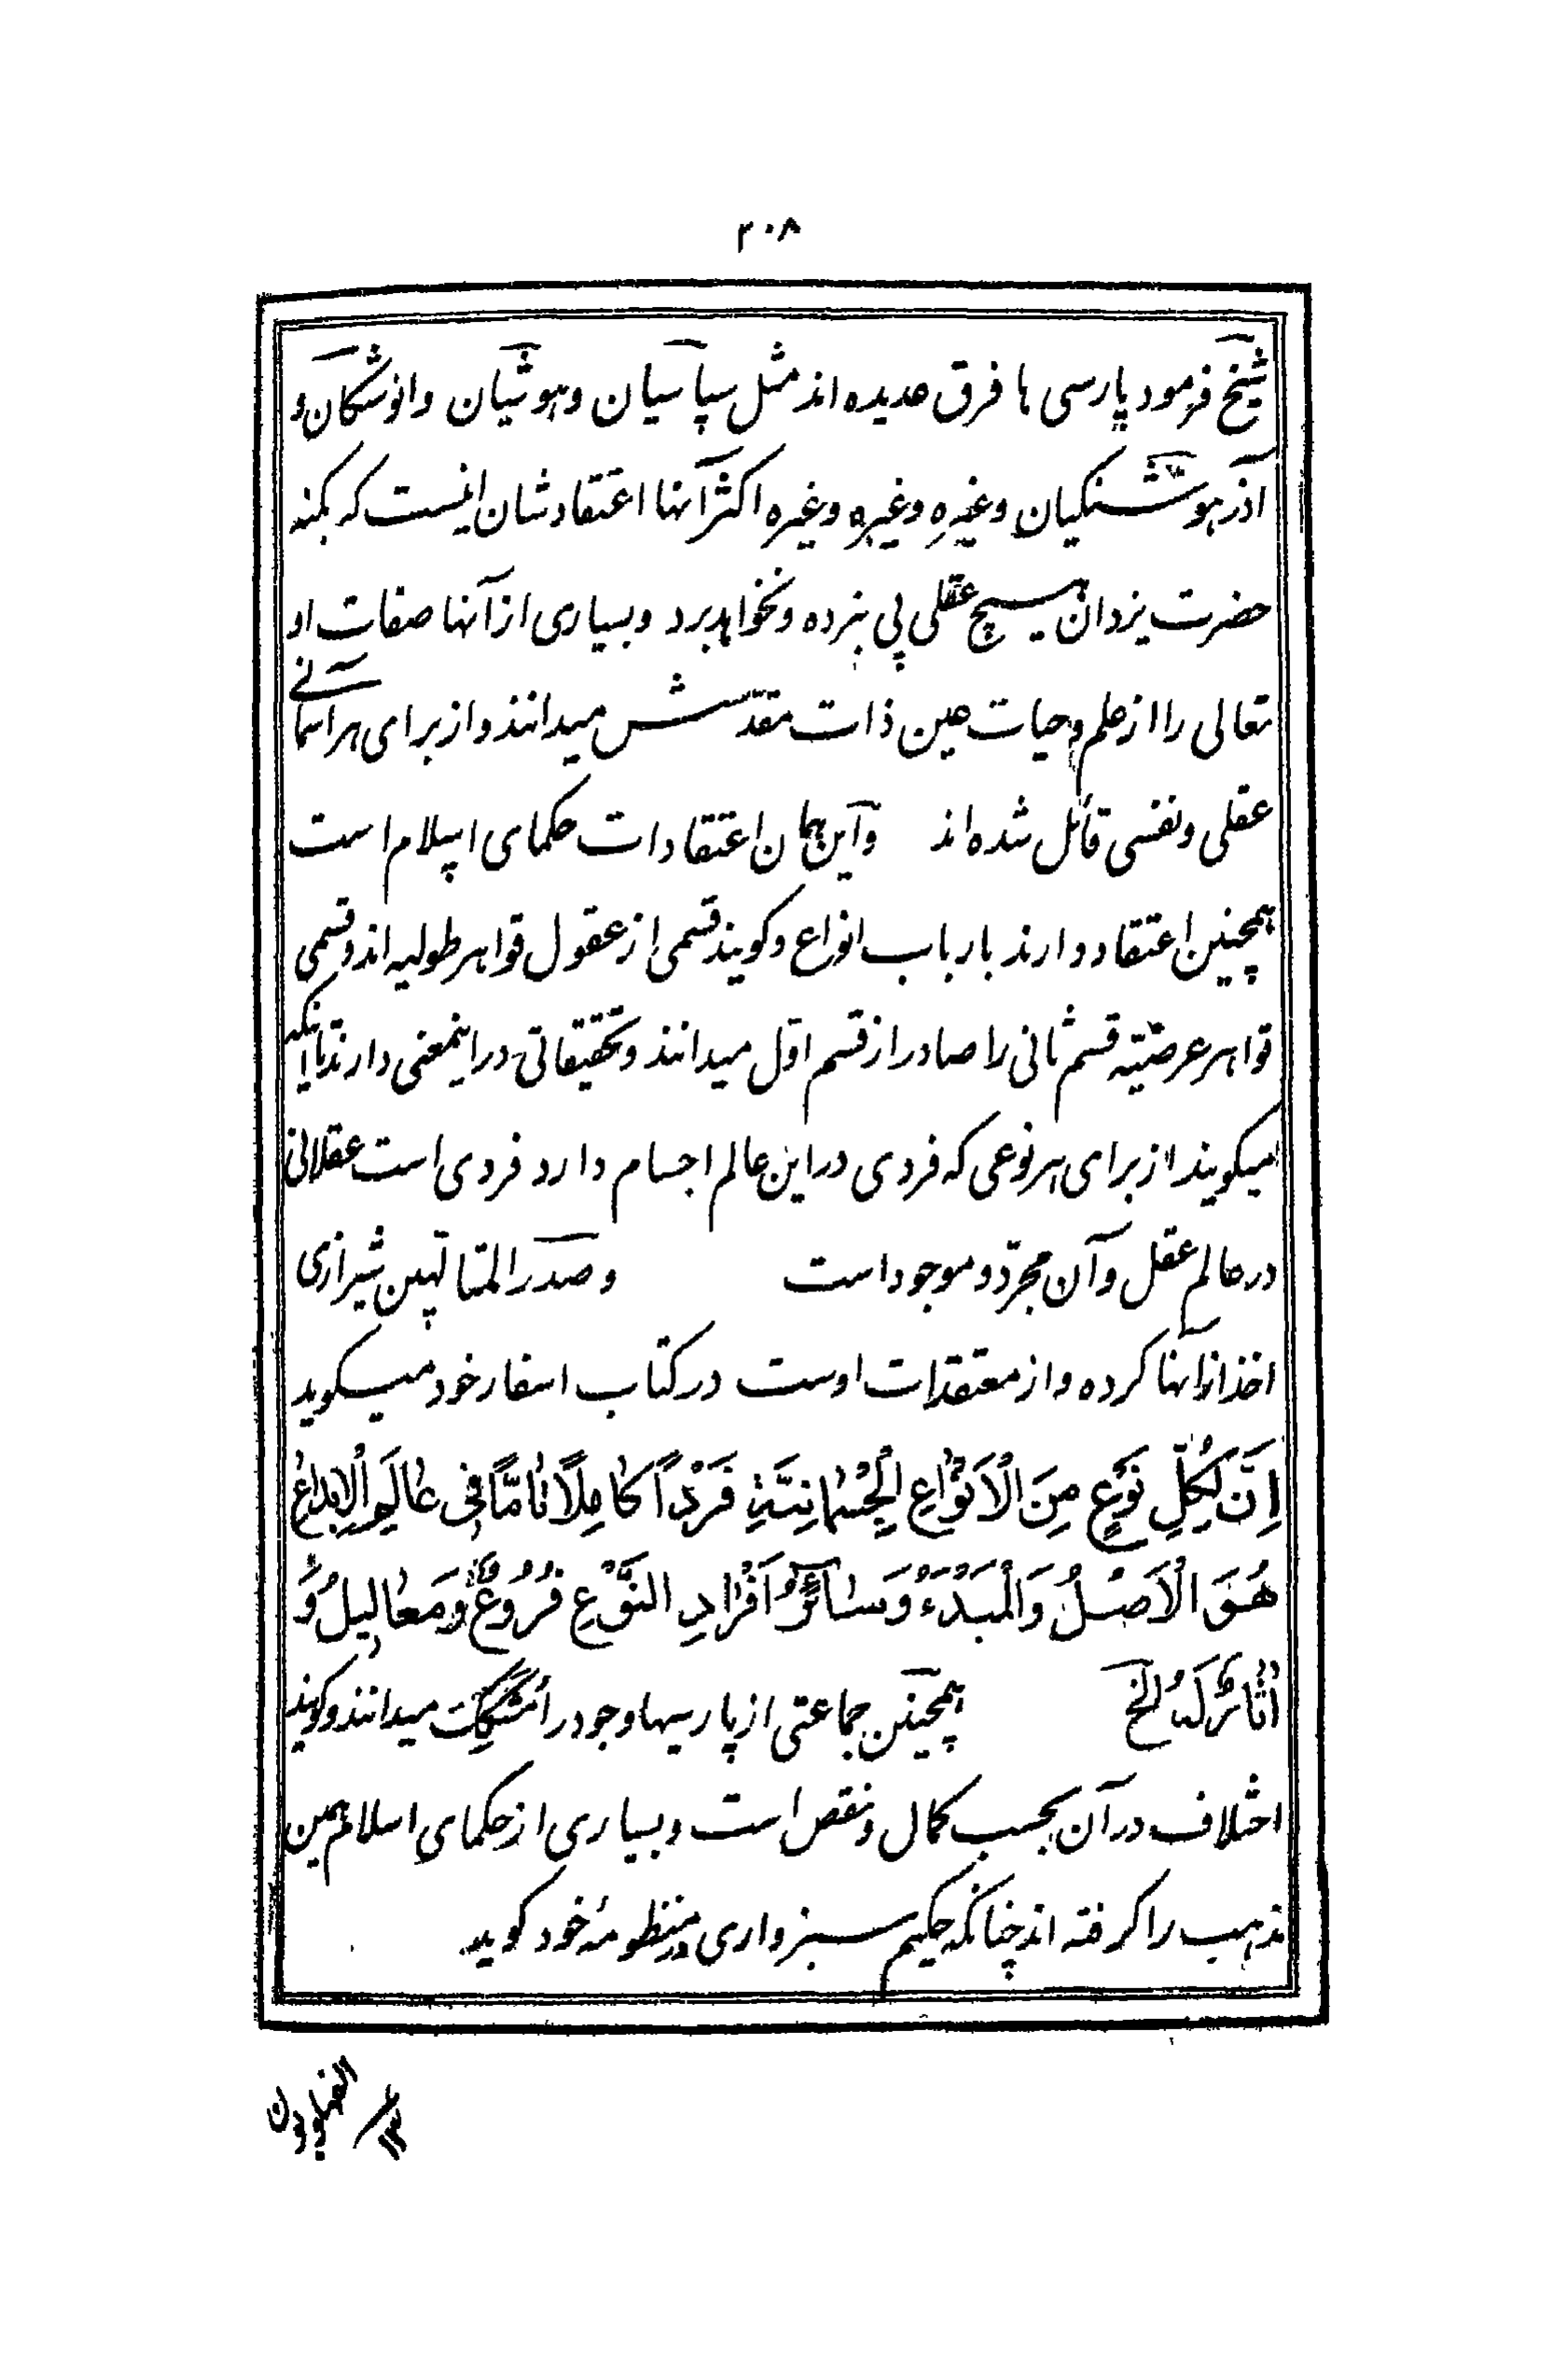 ۳۰۸
شیخ فرمود پارسی ها فرق عدیده اند مثل سپاسیان وهوشیان وانوشکان و
آذرهوشنکیان وغیرهِ وغیره وغیره اکثر آنها اعتقادشان اینست که بکنه
حضرت یزدان هیچ عقلی پی نبرده ونخواهد برد وبسیاری از آنها صفات او
تعالی را از علم وحیات عین ذات مقدسش میدانند واز برای هر آسمانے
عقلی ونفسی قائل شده اند واین همان اعتقادات حکمای اسلام است
همچنین اعتقاد دارند بارباب انواع وکویند قسمی از عقول قواهر طولیه اند وقسمی
قواهر عرضیّه قسم ثانی را صادر از قسم اوّل میدانند وتحقیقاتی در اینمعنی دارند تا اینکه
میکویند از برای هر نوعی که فردی در این عالم اجسام دارد فردی است عقلانی
در عالم عقل وآن مجرّد وموجود است وصدر المتالهین شیرازی
اخذ از آنها کرده واز معتقدات اوست در کتاب اسفار خود میکوید
اِنَّ لِکُلِّ نَوعٍ مِنَ الْاَنْواعِ الْجِسْمانِیَّةِ فَرْداً کامِلاً تامّاً فی عالَمِ الْاِبداعِ
هُوَ الْاَصْلُ وَالْمَبْدَءُ وَسائِرُ اَفْرادِ النَّوْعِ فُرُوعٌ وَمَعالیلُ وَ
اٰثارٌ لَهُ الخ همچنین جماعتی از پارسیها وجود را مُشَکِّک میدانند وکویند
اختلاف در آن بحسب کمال ونقص است وبسیاری از حکمای اسلام همین
مذهب را کرفته اند چنانکه حکیم سبزواری در منظومهٔ خود کوید
الفهلویون